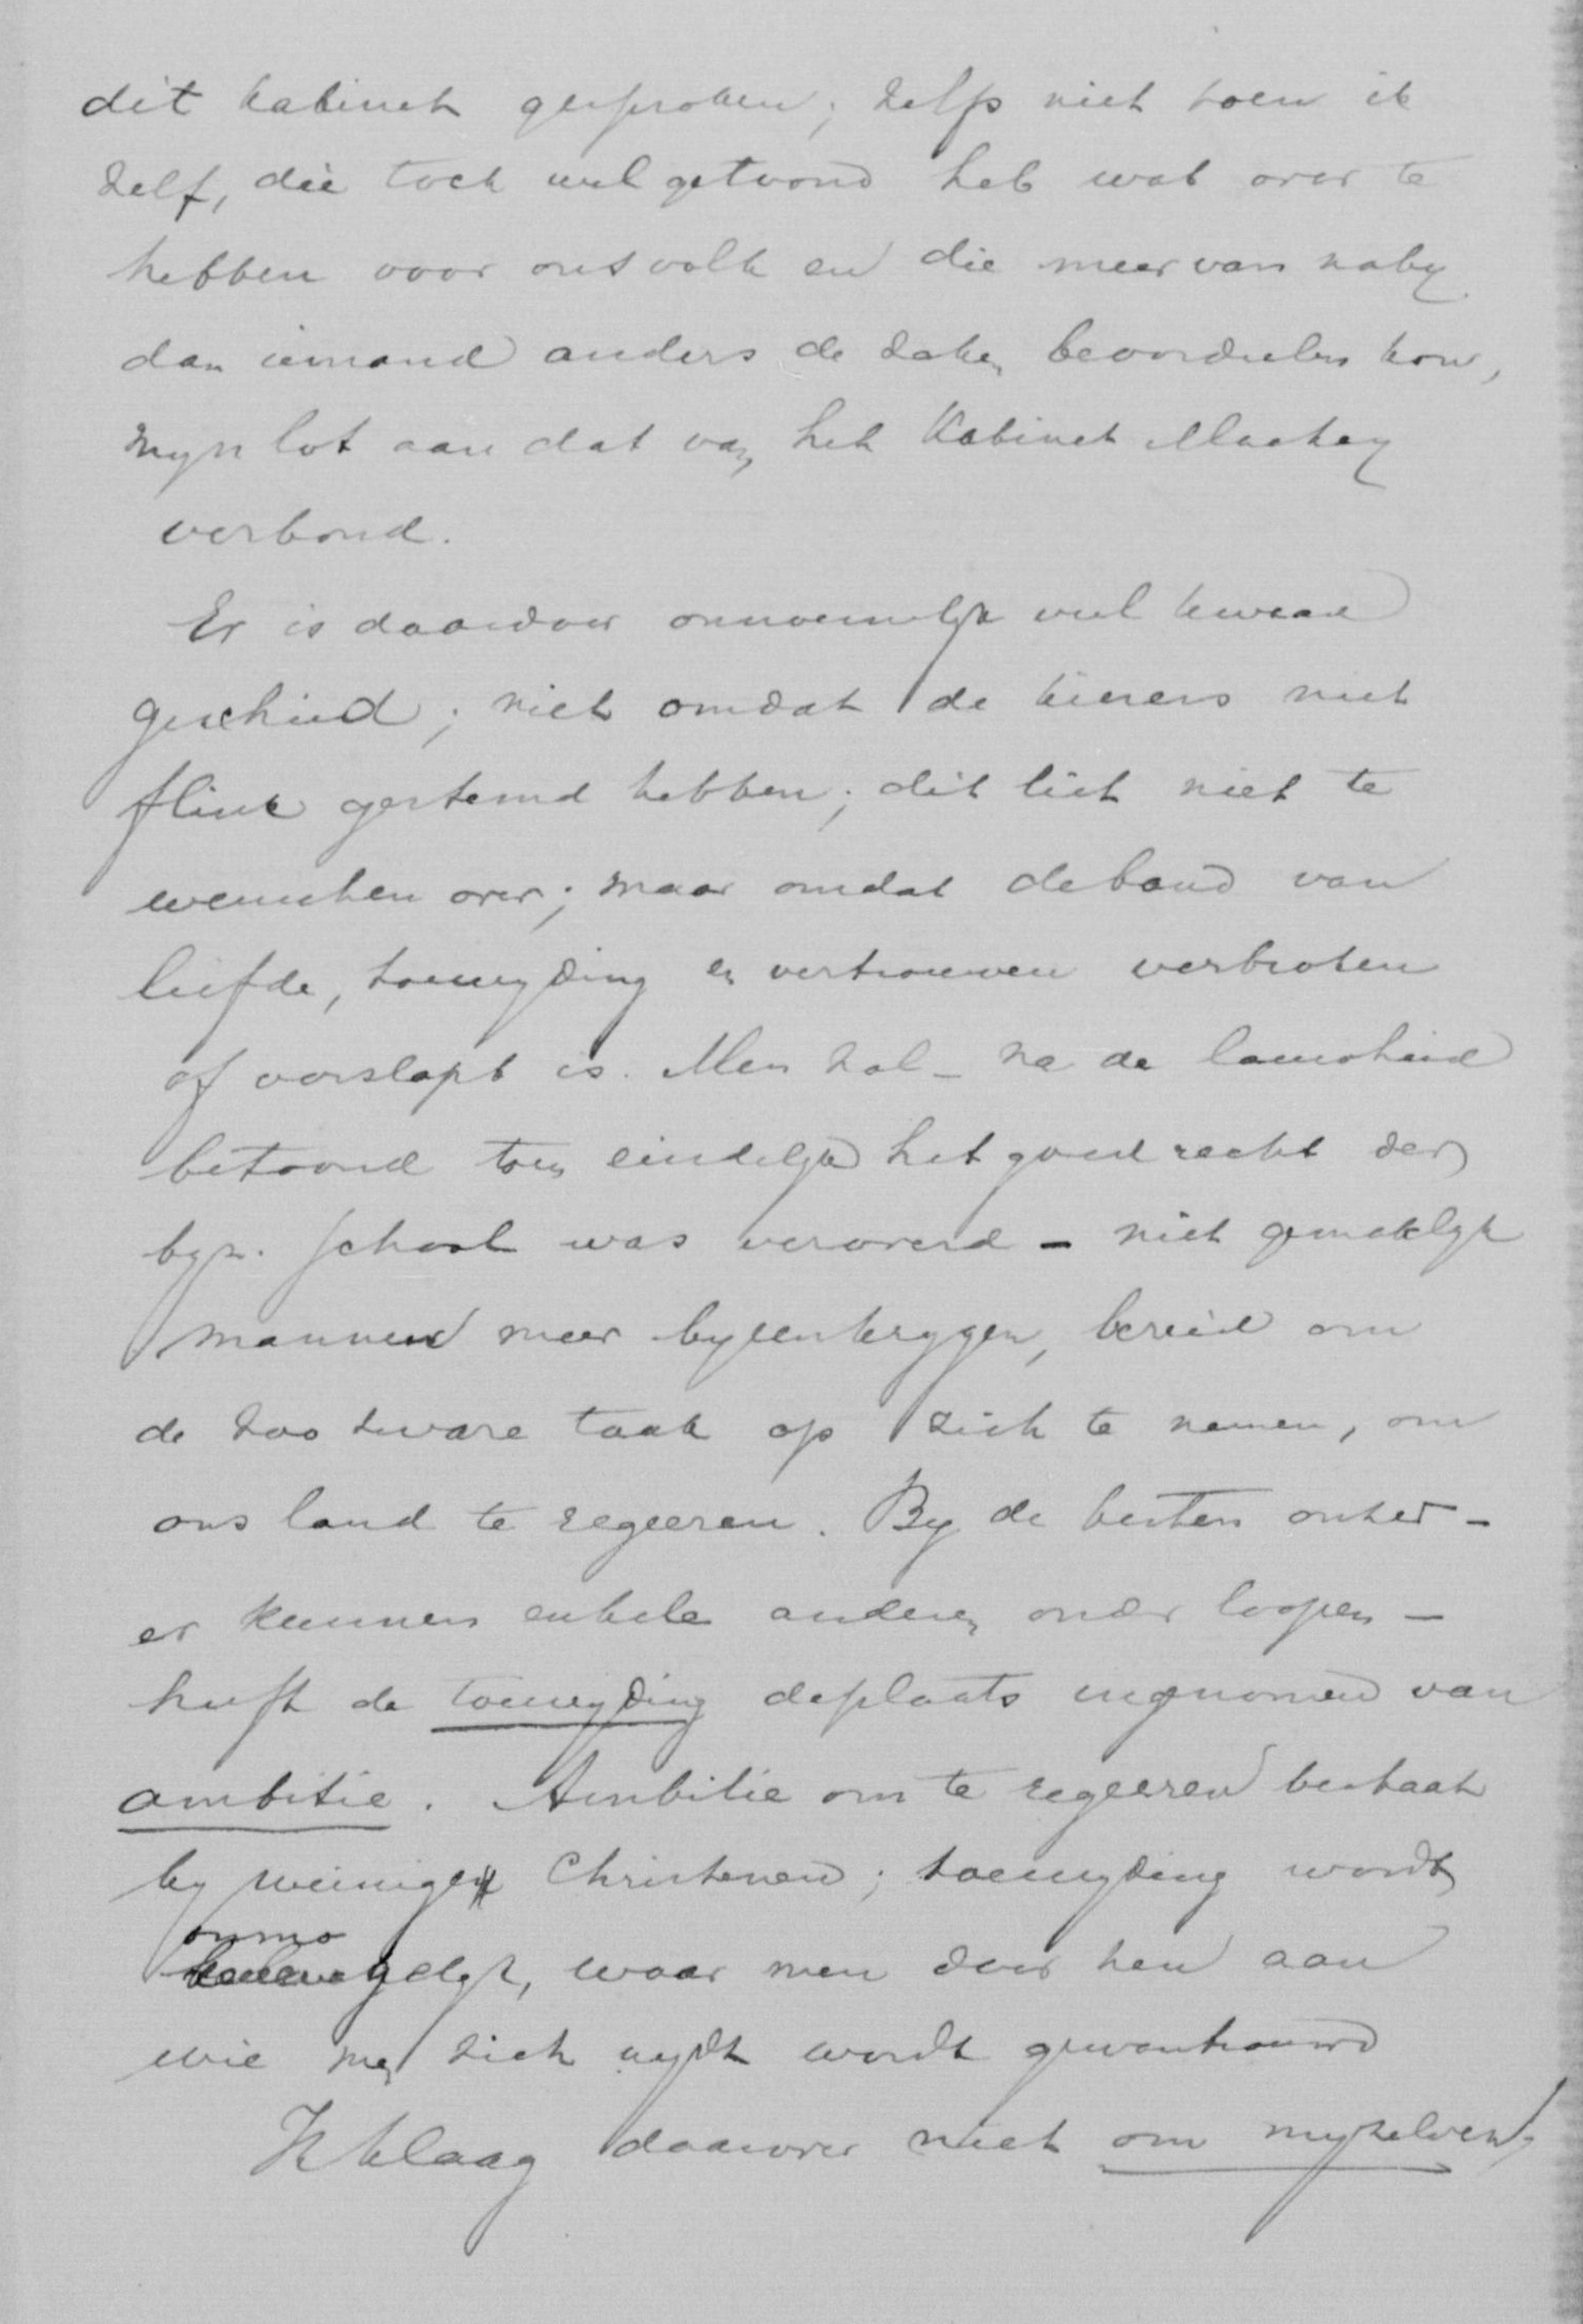 dit kabinet gesproken; zelfs niet toen ik
zelf, die toch wel getoond heb wat over te
hebben voor ons volk en die meer van naby
dan iemand anders de zaken beoordeelen kon,
myn lot aan dat van het Kabinet Mackay
verbond.
Er is daardoor onnoemelyk veel kwaad
geschied; niet omdat de kiezers niet
flink gestemd hebben; dit liet niet te
wenschen over; maar omdat de band van
liefde, toewyding en vertrouwen verbroken
of verslapt is. Men zal - na de lauwheid
betoond toen eindelyk het goed recht der
byz. school was veroverd - niet gemaklyk
mannen meer byeenkrygen, bereid om
de zoo zware taak op zich te nemen, om
ons land te regeeren. By de besten onzer -
er kunnen enkele anderen onder loopen -
heeft de toewyding de plaats ingenomen van
ambitie. Ambitie om te regeeren bestaat
by weinige Christenen; toewyding wordt
onmo
gelyk, waar men door hen aan
wie men zich wydt wordt gewantrouwd
Ik klaag daarover niet om myzelven,